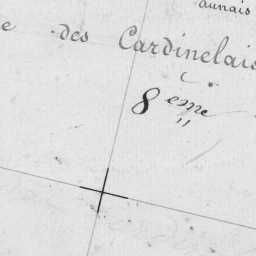 aunais
e des Cardinelais
8 eme